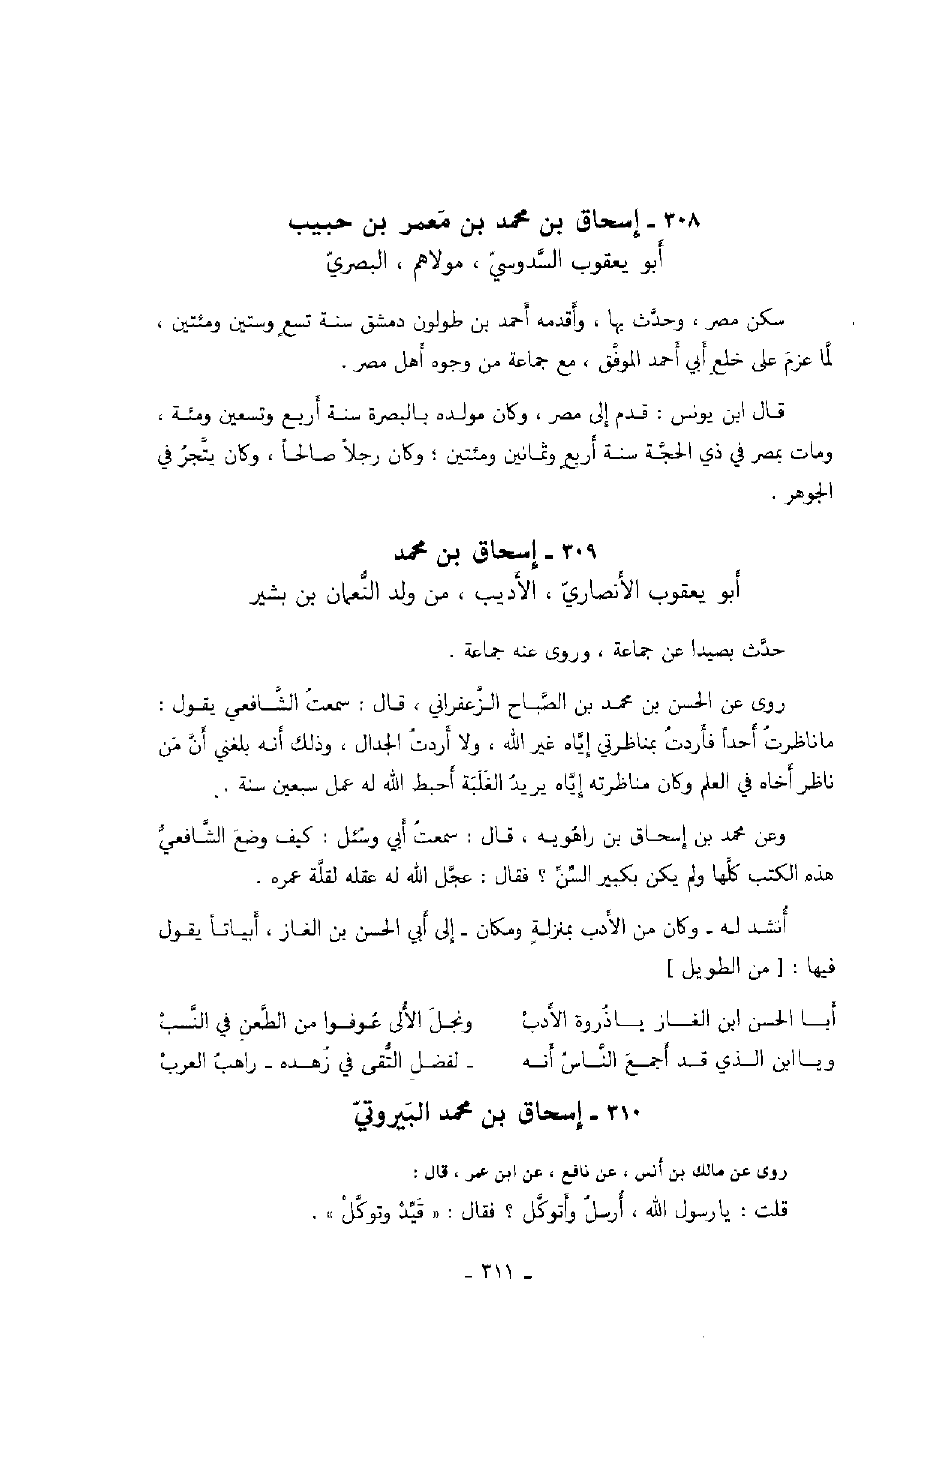 ٣٠٨ ـ إسحاق بن محمد بن مَعمر بن حبيب
أبو يعقوب السَّدوسيّ ، مولاهم ، البصريّ
سكن مصر ، وحدَّث بها ، وأقدمه أحمد بن طولون دمشق سنة تسعٍ وستين ومئتين ،
لمَّا عزمَ على خلعِ أبي أحمد الموفَّق ، مع جماعة من وجوه أهل مصر .
قال ابن يونس : قدم إلى مصر ، وكان مولده بالبصرة سنة أربع وتسعين ومئة ،
ومات بمصر في ذي الحجَّة سنة أربعٍ وثمانين ومئتين ؛ وكان رجلاً صالحاً ، وكان يتَّجرُ في
الجوهر .
٣٠٩ ـ إسحاق بن محمد
أبو يعقوب الأنصاريّ ، الأديب ، من ولد النُّعمان بن بشير
حدَّث بصيدا عن جماعة ، وروى عنه جماعة .
روى عن الحسن بن محمد بن الصَّباح الزَّعفراني ، قال : سمعتُ الشَّافعي يقول :
ماناظرتُ أحداً فأردتُ بمناظرتي إيَّاه غير الله ، ولا أردتُ الجدال ، وذلك أنه بلغني أنَّ مَن
ناظر أخاه في العلم وكان مناظرته إيَّاه يريدُ الغَلَبَة أحبط الله له عمل سبعين سنة .
وعن محمد بن إسحاق بن راهُويه ، قال : سمعتُ أبي وسُئل : كيف وضعَ الشَّافعيُّ
هذه الكتب كلَّها ولم يكن بكبير السِّنِّ ؟ فقال : عجَّل الله له عقله لقلَّة عمره .
أُنشد له ـ وكان من الأدب بمنزلةٍ ومكان ـ إلى أبي الحسن بن الغاز ، أبياتاً يقول
فيها : [ من الطويل ]
أبا الحسن ابن الغاز ياذُروة الأدبْ ونجلَ الأُلى عُوفوا من الطَّعنِ في النَّسبْ
ويا ابن الذي قد أجمعَ النَّاسُ أنه ـ لفضل التُّقى في زُهده ـ راهبُ العربْ
٣١٠ ـ إسحاق بن محمد البَيروتيّ
روى عن مالك بن أنس ، عن نافع ، عن ابن عمر ، قال :
قلت : يارسول الله ، أُرسلُ وأَتوكَّل ؟ فقال : « قَيِّدْ وتوكَّلْ » .
ـ ٣١١ ـ